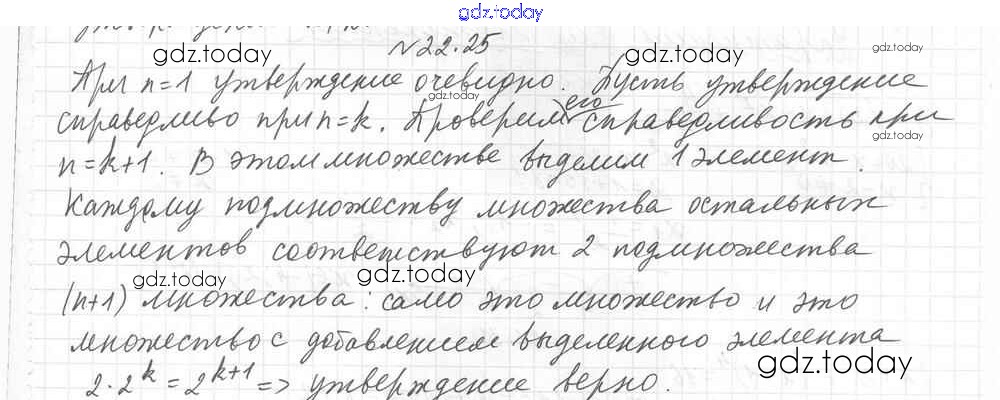 gdz.today
№22.25
gdz.today gdz.today
При n=1 утверждение очевидно. Пусть утверждение
gdz.today
справедливо при n=k. Проверим его справедливость при
gdz.today gdz.today
n=k+1. В этом множестве выделим 1 элемент.
Каждому подмножеству множества остальных
элементов соответствуют 2 подмножества
gdz.today gdz.today
(n+1) множества: само это множество и это
множество с добавлением выделенного элемента
gdz.today
2·2^k = 2^{k+1} => утверждение верно.